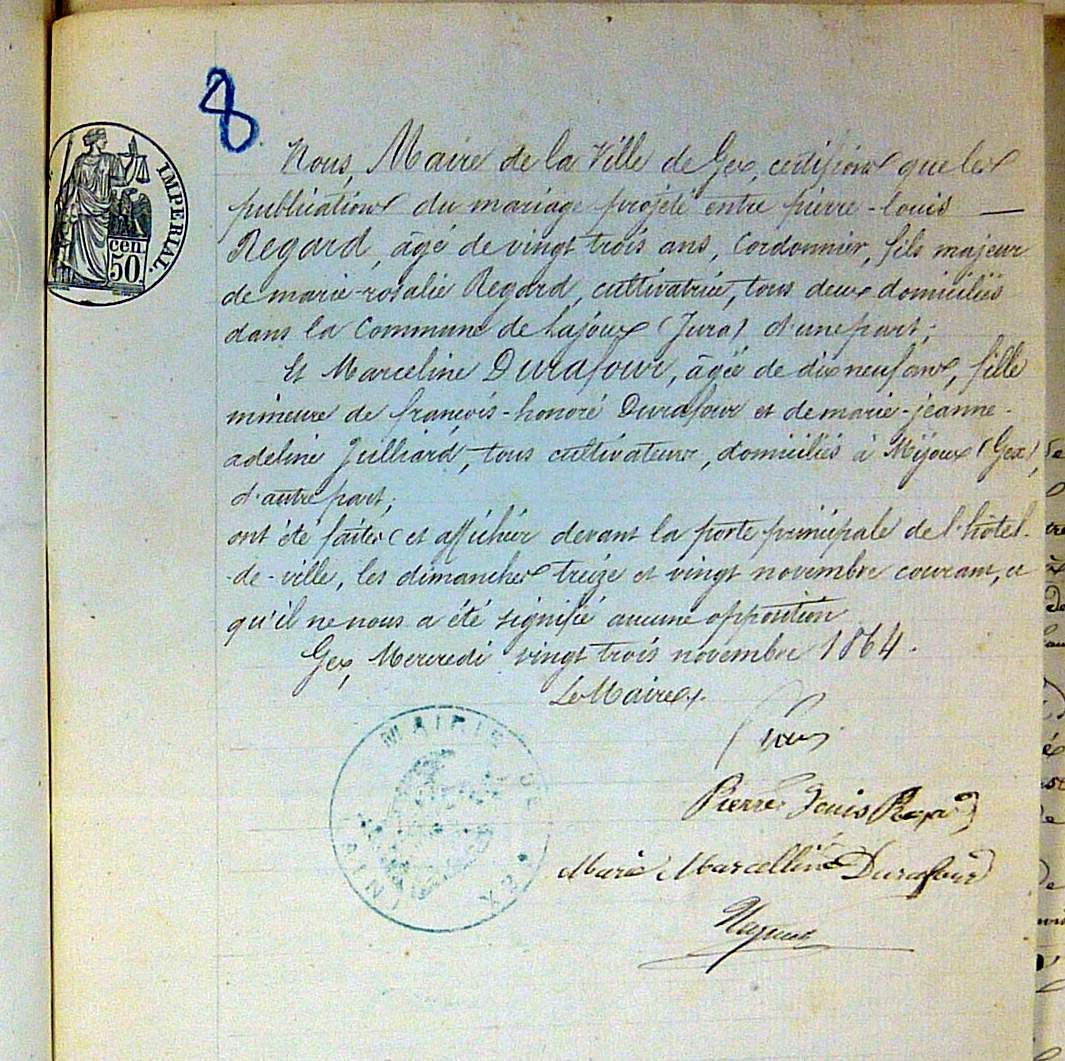 8
IMPERIAL.
50 cen
Nous, Maire de la Ville de Gex, certifions que les
publications du mariage projeté entre pierre-louis —
Regard, âgé de vingt trois ans, Cordonnier, fils majeur
de marie-rosalie Regard, cultivatrice, tous deux domiciliés
dans la Commune de Lajoux (Jura) d'une part;
Et Marceline Durafour, âgée de dix neuf ans, fille
mineure de françois-honoré Durafour et de marie-jeanne-
adeline Julliard, tous cultivateurs, domiciliés à Mijoux (Gex),
d'autre part;
ont été faites et affichées devant la porte principale de l'hôtel-
-de-ville, les dimanches treize et vingt novembre courant, et
qu'il ne nous a été signifié aucune opposition
Gex, Mercredi vingt trois novembre 1864.
Le Maire,
MAIRIE DE GEX
(AIN)
Pierre Louis Regard
Marie Marcelline Durafour